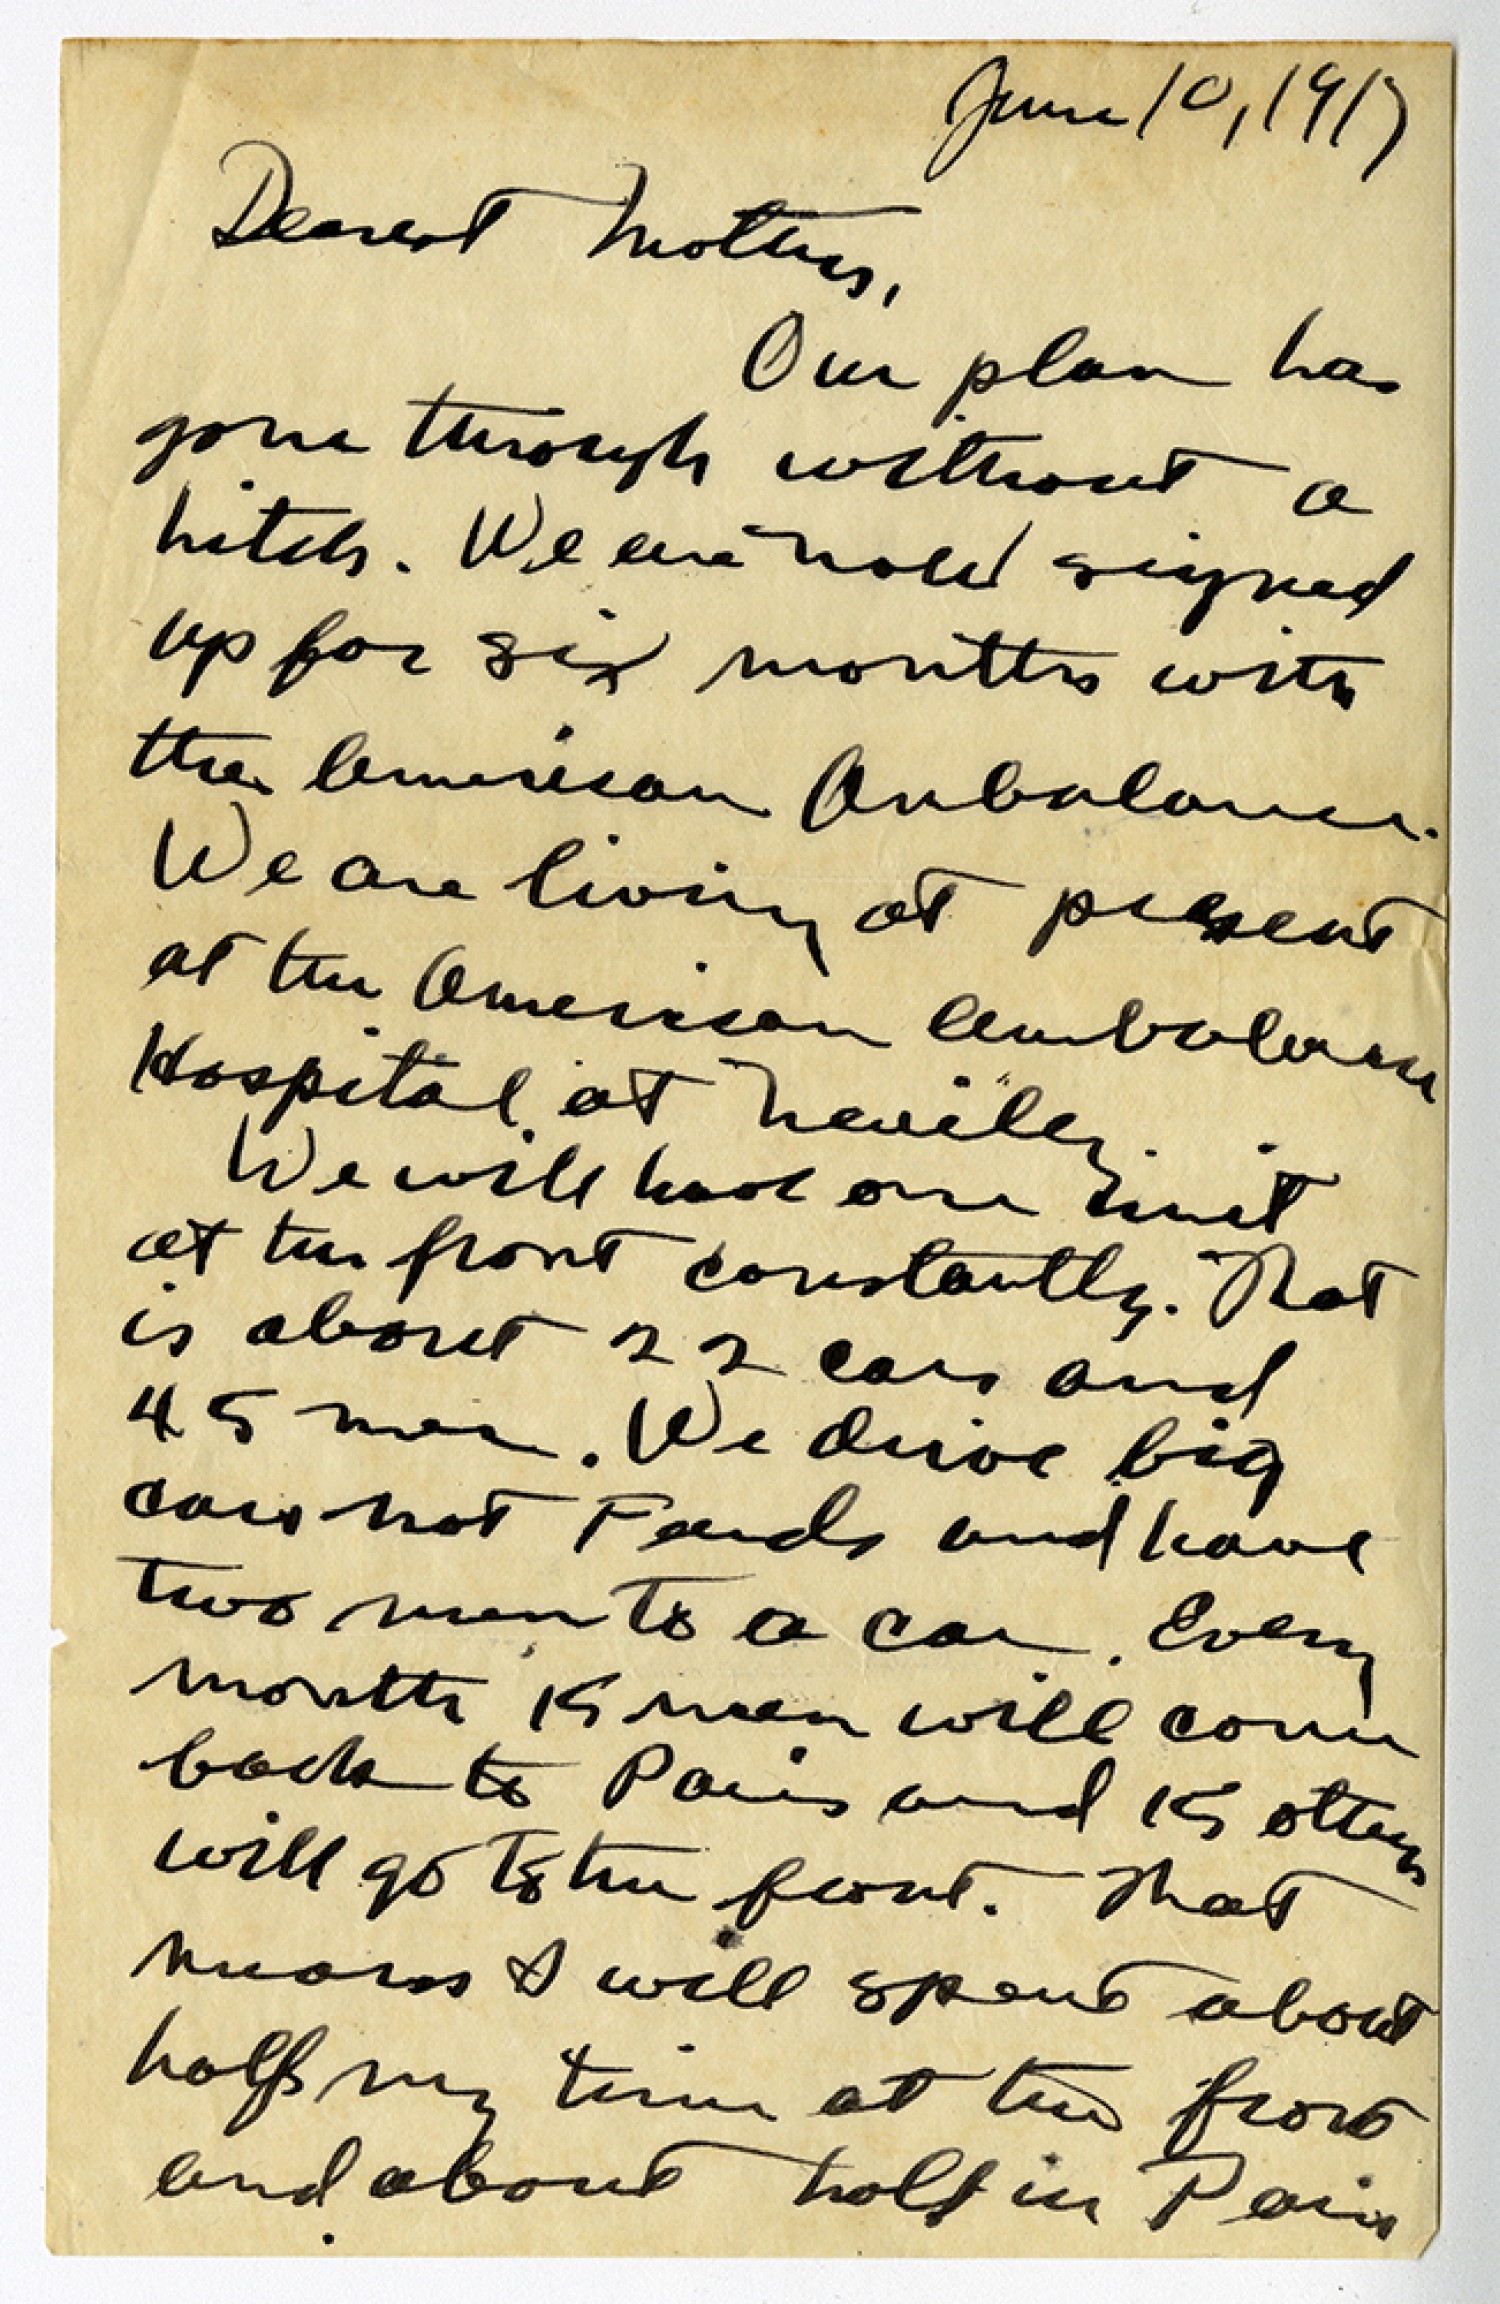 June 10, 1917
Dearest Mother,
Our plan has
gone through without a
hitch. We are now signed
up for six months with
the American Ambulance.
We are living at present
at the American Ambulance
Hospital at Neuilly.
We will have one unit
at the front constantly. That
is about 22 cars and
45 men. We drive big
cars not Fords and have
two men to a car. Every
month 15 men will come
back to Paris and 15 others
will go to the front. That
means I will spend about
half my time at the front
and about half in Paris